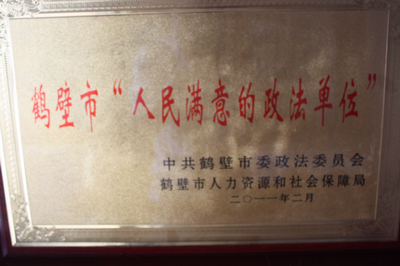 鹤壁市“人民满意的政法单位”
中共鹤壁市委政法委员会
鹤壁市人力资源和社会保障局
二〇一一年二月